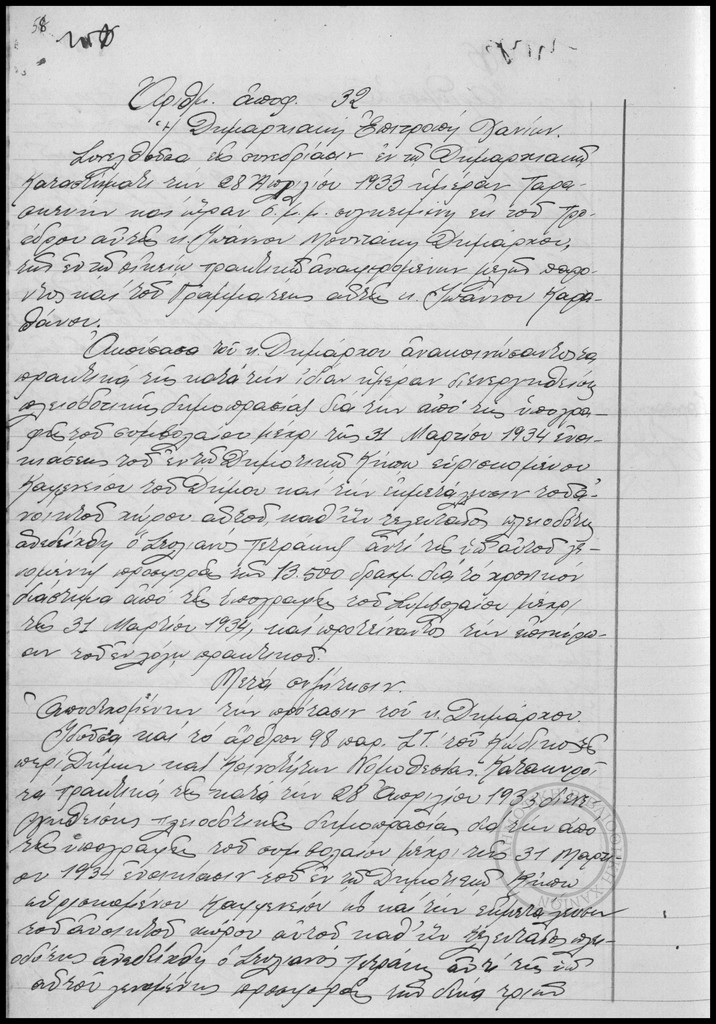 58
Αριθμ. αποφ. 32
Η Δημαρχιακή Επιτροπή Χανίων.
Συνελθούσα εις συνεδρίασιν εν τω Δημαρχιακώ
Καταστήματι την 28 Απριλίου 1933 ημέραν Παρα-
σκευήν και ώραν 6 μ.μ. συγκειμένη εκ του Προ-
έδρου αυτής κ. Ιωάννου Μουντάκη Δημάρχου,
της εν τω οικείω πρακτικώ αναφερομένων μελών παρό-
ντος και του Γραμματέως αυτής κ. Ιωάννου Καρα-
θάνου.
Ακούσασα του κ. Δημάρχου ανακοινώσαντος τα
πρακτικά της κατά την ιδίαν ημέραν διενεργηθείσης
πλειοδοτικής δημοπρασίας διά την από της υπογρα-
φής του συμβολαίου μέχρι της 31 Μαρτίου 1934 ενοι-
κιάσεως του εν τω Δημοτικώ Κήπω ευρισκομένου
Καφενείου του Δήμου και την εκμετάλευσιν του α-
νοικτού χώρου αυτού, καθ' ην τελευταίος πλειοδότης
απεδείχθη ο Στυλιανός Πετράκης αντί της υπ' αυτού γε-
νομένης προσφοράς των 13.500 δραχμ. διά το χρονικόν
διάστημα από της υπογραφής του Συμβολαίου μέχρι
της 31 Μαρτίου 1934, και προτείναντος την επικύρω-
σιν του εν λόγω πρακτικού.
Μετά συζήτησιν.
Αποδεχομένη την πρότασιν του κ. Δημάρχου.
Ιδούσα και το άρθρον 98 παρ. ΣΤ. του Κώδικος της
περί Δήμων και Κοινοτήτων Νομοθεσίας. Κατακυροί
τα πρακτικά της κατά την 28 Απριλίου 1933 διενε-
γηθείσης πλειοδοτικής δημοπρασίας διά την από
της υπογραφής του συμβολαίου μέχρι της 31 Μαρτί-
ου 1934 ενοικίασιν του εν τω Δημοτικώ Κήπω
ευρισκομένου Καφφενείου ως και την εκμετάλευσιν
του ανοικτού χώρου αυτού καθ' ην τελευταίος πλει-
οδότης απεδείχθη ο Στυλιανός Πετράκης αντί της υπ'
αυτού γενομένης προσφοράς των δέκα τριών